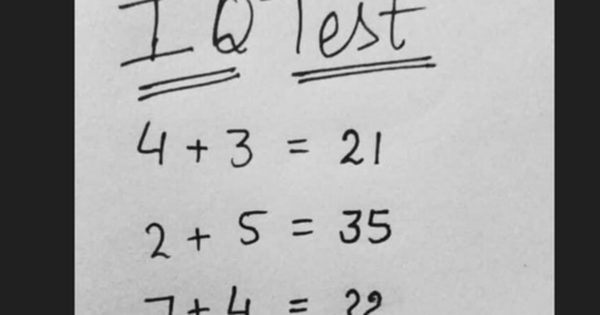 IQ Test
4 + 3 = 21
2 + 5 = 35
7 + 4 =